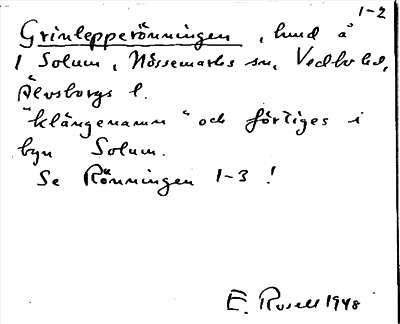 1-2
Grinlepperönningen, hmd å
1 Solum, Nössemarks sn, Vedbo hd,
Älvsborgs l.
"klängenamn" och förtiges i
byn Solum.
Se Rönningen 1-3 !
E. Rosell 1948